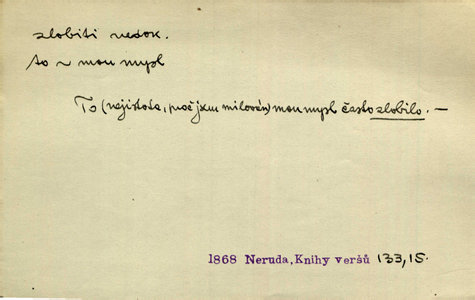 zlobiti nedok.
to ~ mou mysl
To (nejistota, proč jsem milován) mou mysl často zlobilo. —
1868 Neruda, Knihy veršů 133,15.